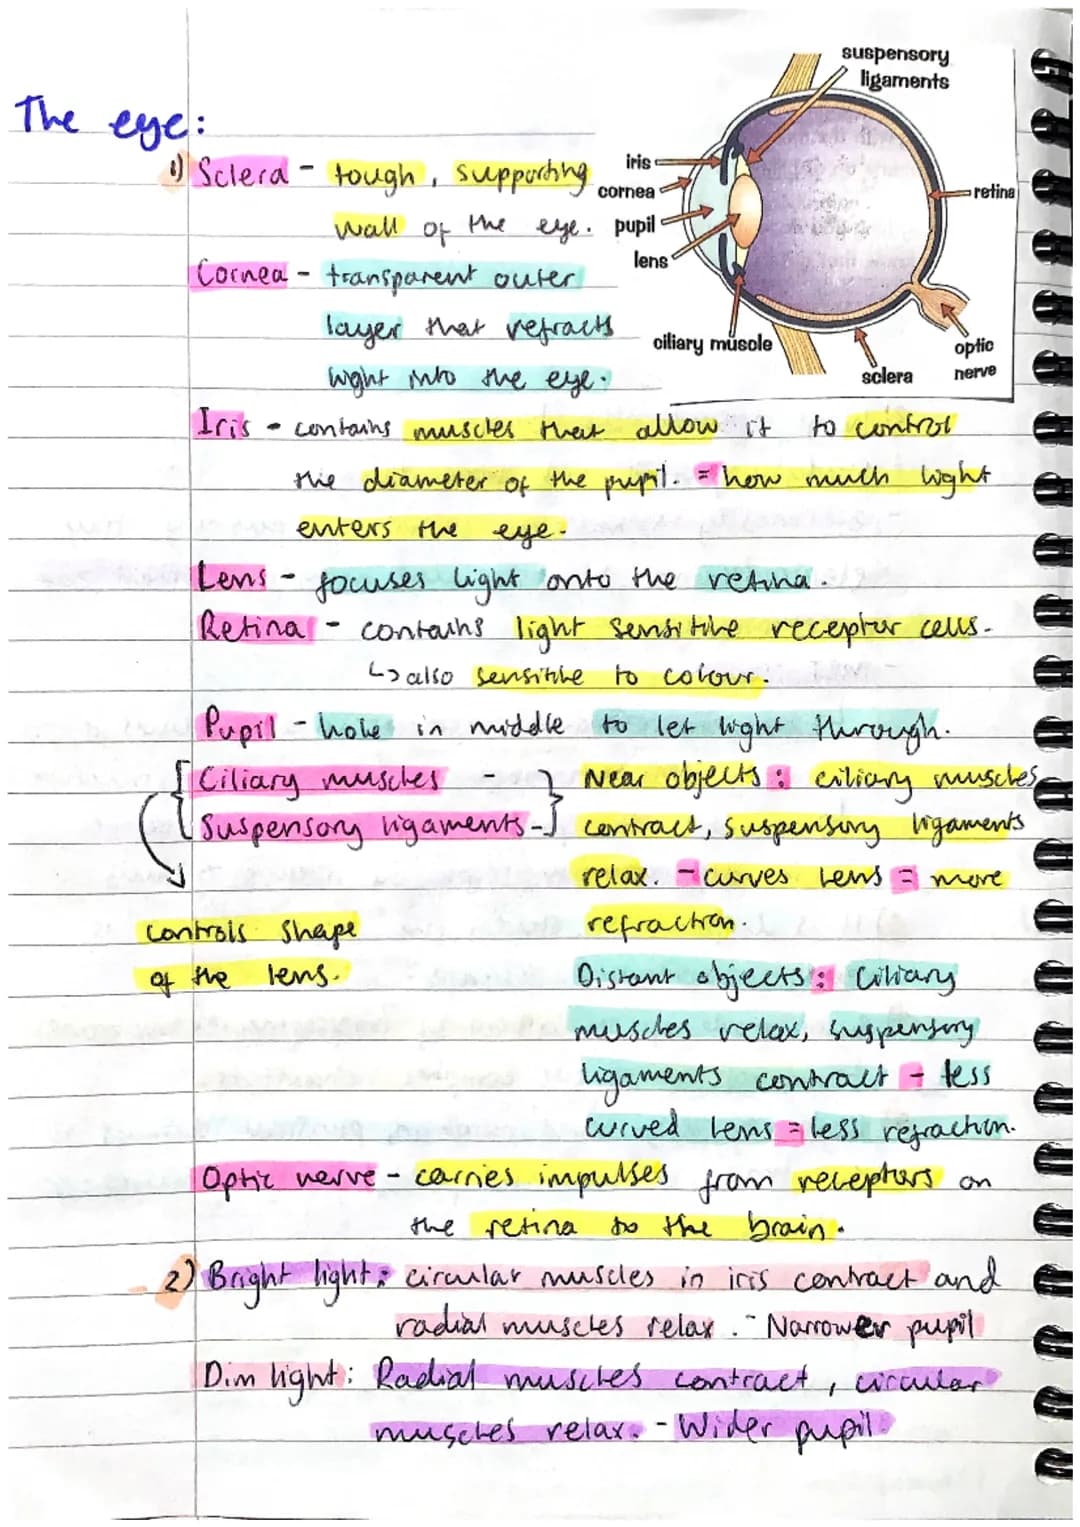 The eye:
suspensory
ligaments
iris
cornea
pupil
lens
retina
ciliary muscle
sclera
optic
nerve
1) Sclera - tough, supporting
wall of the eye.
Cornea - transparent outer
layer that refracts
light into the eye.
Iris - contains muscles that allow it to control
the diameter of the pupil. = how much light
enters the eye.
Lens - focuses light onto the retina.
Retina - contains light sensitive receptor cells.
↳ also sensitive to colour.
Pupil - hole in middle to let light through.
Ciliary muscles -
Suspensory ligaments -
controls shape
of the lens.
Near objects: ciliary muscles
contract, suspensory ligaments
relax. - curves lens = more
refraction.
Distant objects: Ciliary
muscles relax, suspensory
ligaments contract - less
curved lens = less refraction.
Optic nerve - carries impulses from receptors on
the retina to the brain.
2) Bright light: circular muscles in iris contract and
radial muscles relax. - Narrower pupil
Dim light: Radial muscles contract, circular
muscles relax. - Wider pupil.